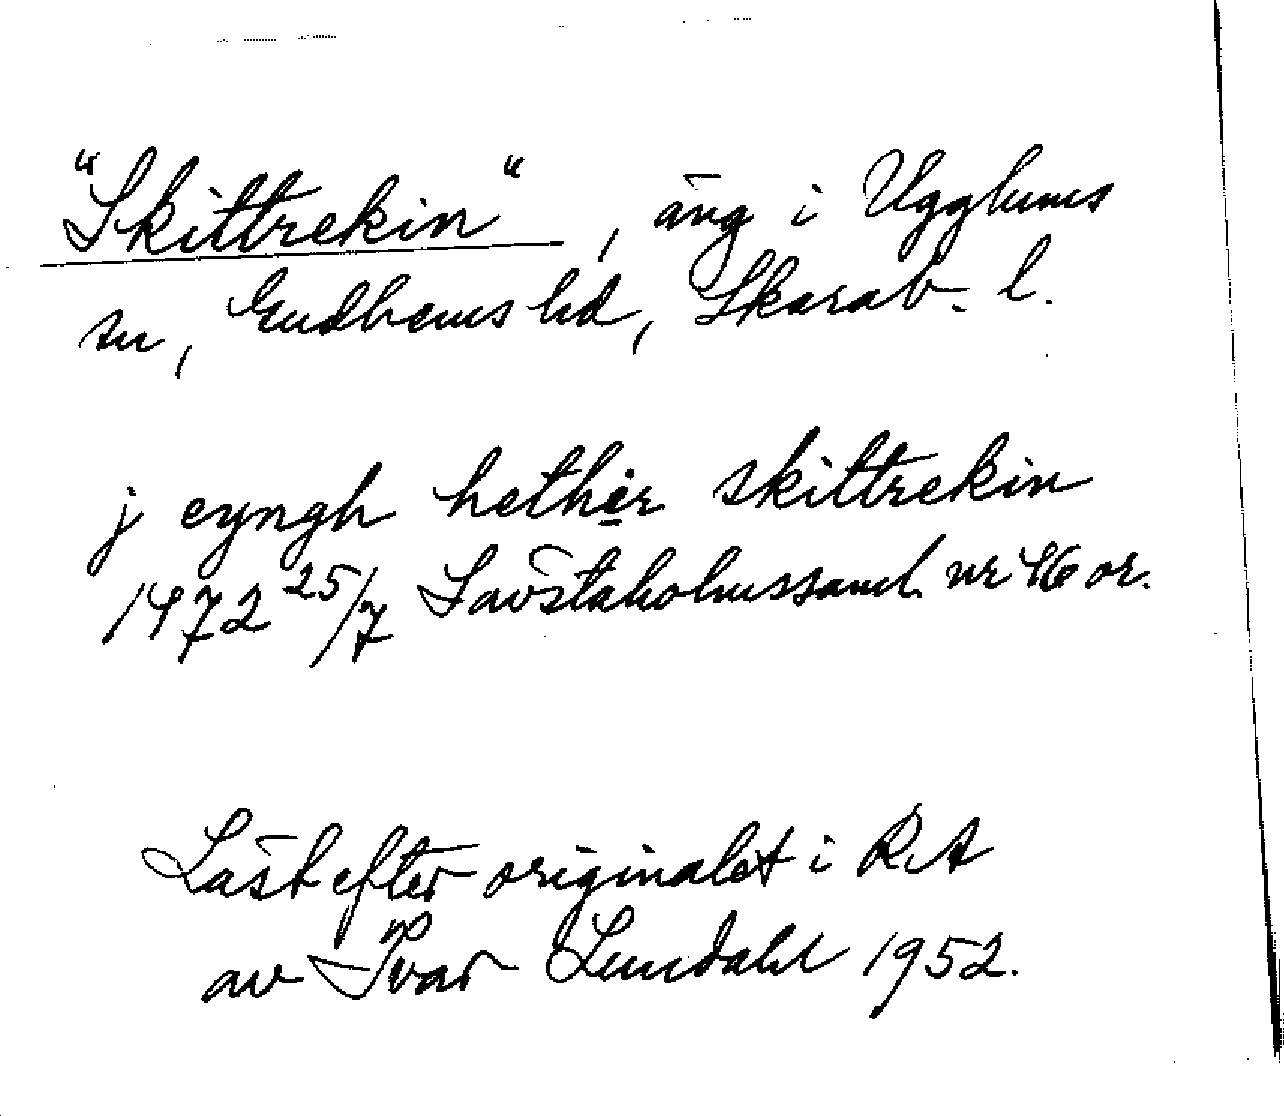 "Skittrekin", äng i Ugglums
sn, Gudhems hd, Skarab. l.
j eyngh hether skittrekin
1472 25/7 Sävstaholmssaml. nr 46 or.
Läst efter originalet i RA
av Ivar Lundahl 1952.